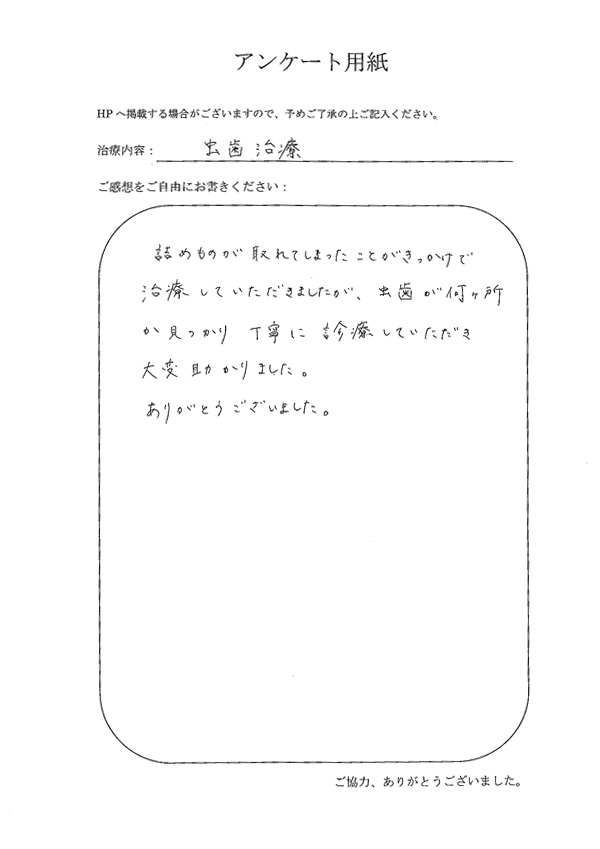 アンケート用紙
HPへ掲載する場合がございますので、予めご了承の上ご記入ください。
治療内容： 虫歯治療
ご感想をご自由にお書きください：
詰めものが取れてしまったことがきっかけで
治療していただきましたが、虫歯が何ヶ所
か見つかり丁寧に診療していただき
大変助かりました。
ありがとうございました。
ご協力、ありがとうございました。